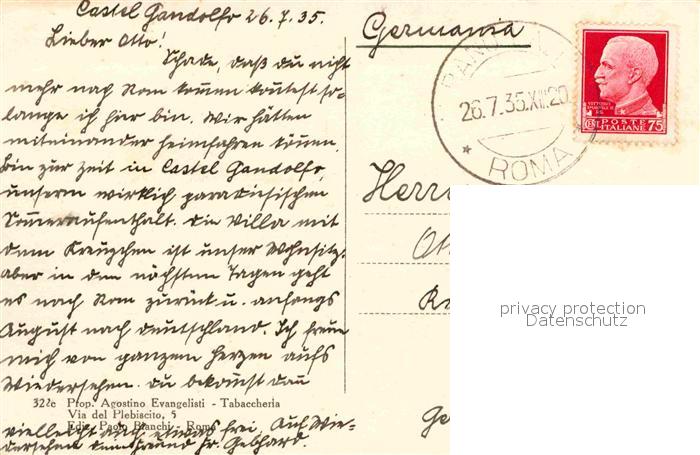 Castel Gandolfo 26.7.35.
Lieber Otto!
Schade, daß du nicht
mehr nach Rom kommen konntest so-
lange ich hier bin. Wir hätten
miteinander heimfahren können.
Bin zur Zeit in Castel Gandolfo,
unserm wirklich paradiesischen
Sommeraufenthalt. Die Villa mit
dem Kreuzchen ist unser Wohnsitz.
Aber in den nächsten Tagen geht
es nach Rom zurück u. anfangs
August nach Deutschland. Ich freue
mich von ganzem Herzen aufs
Wiedersehen. Du bekommst dann
vielleicht auch etwas frei. Auf Wie-
dersehen Fr. Gebhard.
322c Prop. Agostino Evangelisti - Tabaccheria
Via del Plebiscito, 5
Ediz. Paolo Bianchi - Roma
Germania
26.7.35.XIII.20
ROMA
POSTE
ITALIANE 75
Herrn
Ott
privacy protection
Datenschutz